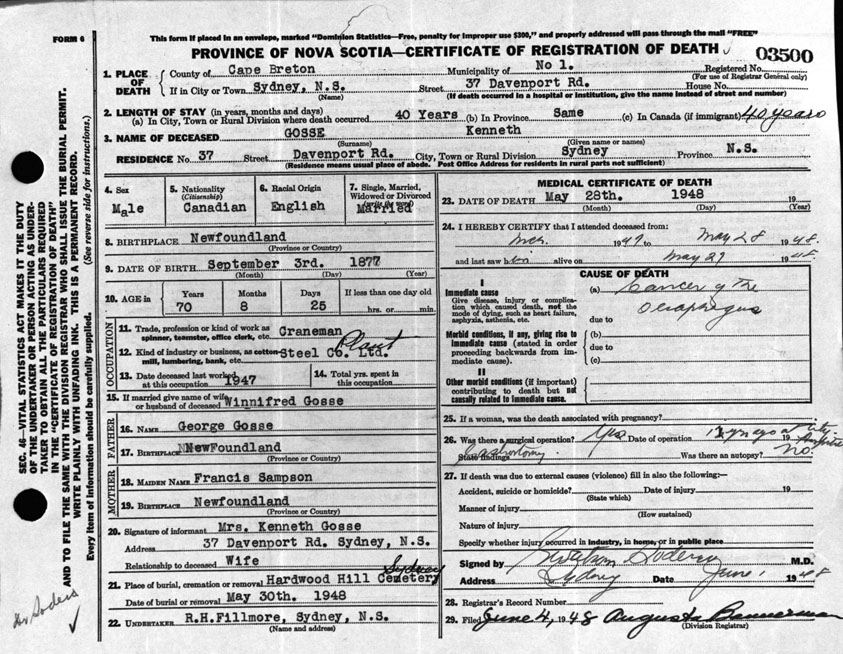 This form if placed in an envelope, marked "Dominion Statistics—Free, penalty for improper use $300," and properly addressed will pass through the mail "FREE"
FORM 6
PROVINCE OF NOVA SCOTIA—CERTIFICATE OF REGISTRATION OF DEATH
03500
1. PLACE OF DEATH
County of Cape Breton Municipality of No 1. Registered No.
(For use of Registrar General only)
If in City or Town Sydney, N.S. Street 37 Davenport Rd. House No.
(Name) (If death occurred in a hospital or institution, give the name instead of street and number)
2. LENGTH OF STAY (in years, months and days)
(a) In City, Town or Rural Division where death occurred 40 Years (b) In Province Same (c) In Canada (if immigrant) 40 years
3. NAME OF DECEASED GOSSE Kenneth
(Surname) (Given name or names)
RESIDENCE No. 37 Street Davenport Rd. City, Town or Rural Division Sydney Province N.S.
(Residence means usual place of abode. Post Office Address for residents in rural parts not sufficient)
4. Sex Male
5. Nationality (Citizenship) Canadian
6. Racial Origin English
7. Single, Married, Widowed or Divorced Married
8. BIRTHPLACE Newfoundland
(Province or Country)
9. DATE OF BIRTH September 3rd. 1877
(Month) (Day) (Year)
10. AGE in Years Months Days If less than one day old
70 8 25 hrs. or min.
OCCUPATION
11. Trade, profession or kind of work as spinner, teamster, office clerk, etc. Craneman
12. Kind of industry or business, as cotton mill, lumbering, bank, etc. Steel Co. Ltd. Plant
13. Date deceased last worked at this occupation 1947
14. Total yrs. spent in this occupation
15. If married give name of wife or husband of deceased Winnifred Gosse
FATHER
16. NAME George Gosse
17. BIRTHPLACE NNewFoundland
(Province or Country)
MOTHER
18. MAIDEN NAME Francis Sampson
19. BIRTHPLACE Newfoundland
(Province or Country)
20. Signature of informant Mrs. Kenneth Gosse
Address 37 Davenport Rd. Sydney, N.S.
Relationship to deceased Wife
21. Place of burial, cremation or removal Hardwood Hill Cemetery Sydney
Date of burial or removal May 30th. 1948
22. UNDERTAKER R.H.Fillmore, Sydney, N.S.
(Name and address)
MEDICAL CERTIFICATE OF DEATH
23. DATE OF DEATH May 28th. 1948 19
(Month) (Day) (Year)
24. I HEREBY CERTIFY that I attended deceased from:
1947 to May 28 1948.
and last saw h im alive on May 27 1948
CAUSE OF DEATH
I
Immediate cause
Give disease, injury or complication which caused death, not the mode of dying, such as heart failure, asphyxia, asthenia, etc.
(a) Cancer of the Oesophagus
due to
Morbid conditions, if any, giving rise to immediate cause (stated in order proceeding backwards from immediate cause).
(b)
due to
(c)
II
Other morbid conditions (if important) contributing to death but not causally related to immediate cause.
25. If a woman, was the death associated with pregnancy?
26. Was there a surgical operation? Yes Date of operation 19
State findings Gastrostomy. Was there an autopsy? No.
27. If death was due to external causes (violence) fill in also the following:—
Accident, suicide or homicide? Date of injury 19
(State which)
Manner of injury
(How sustained)
Nature of injury
Specify whether injury occurred in industry, in home, or in public place
Signed by M.D.
Address Sydney Date June 1 1948
28. Registrar's Record Number
29. Filed June 4, 1948 Augusta Bannerman
(Division Registrar)
SEC. 46—VITAL STATISTICS ACT MAKES IT THE DUTY
OF THE UNDERTAKER OR PERSON ACTING AS UNDER-
TAKER TO OBTAIN ALL THE PARTICULARS REQUIRED
IN THE "CERTIFICATE OF REGISTRATION OF DEATH"
AND TO FILE THE SAME WITH THE DIVISION REGISTRAR WHO SHALL ISSUE THE BURIAL PERMIT.
WRITE PLAINLY WITH UNFADING INK. THIS IS A PERMANENT RECORD.
Every item of information should be carefully supplied. (See reverse side for instructions.)